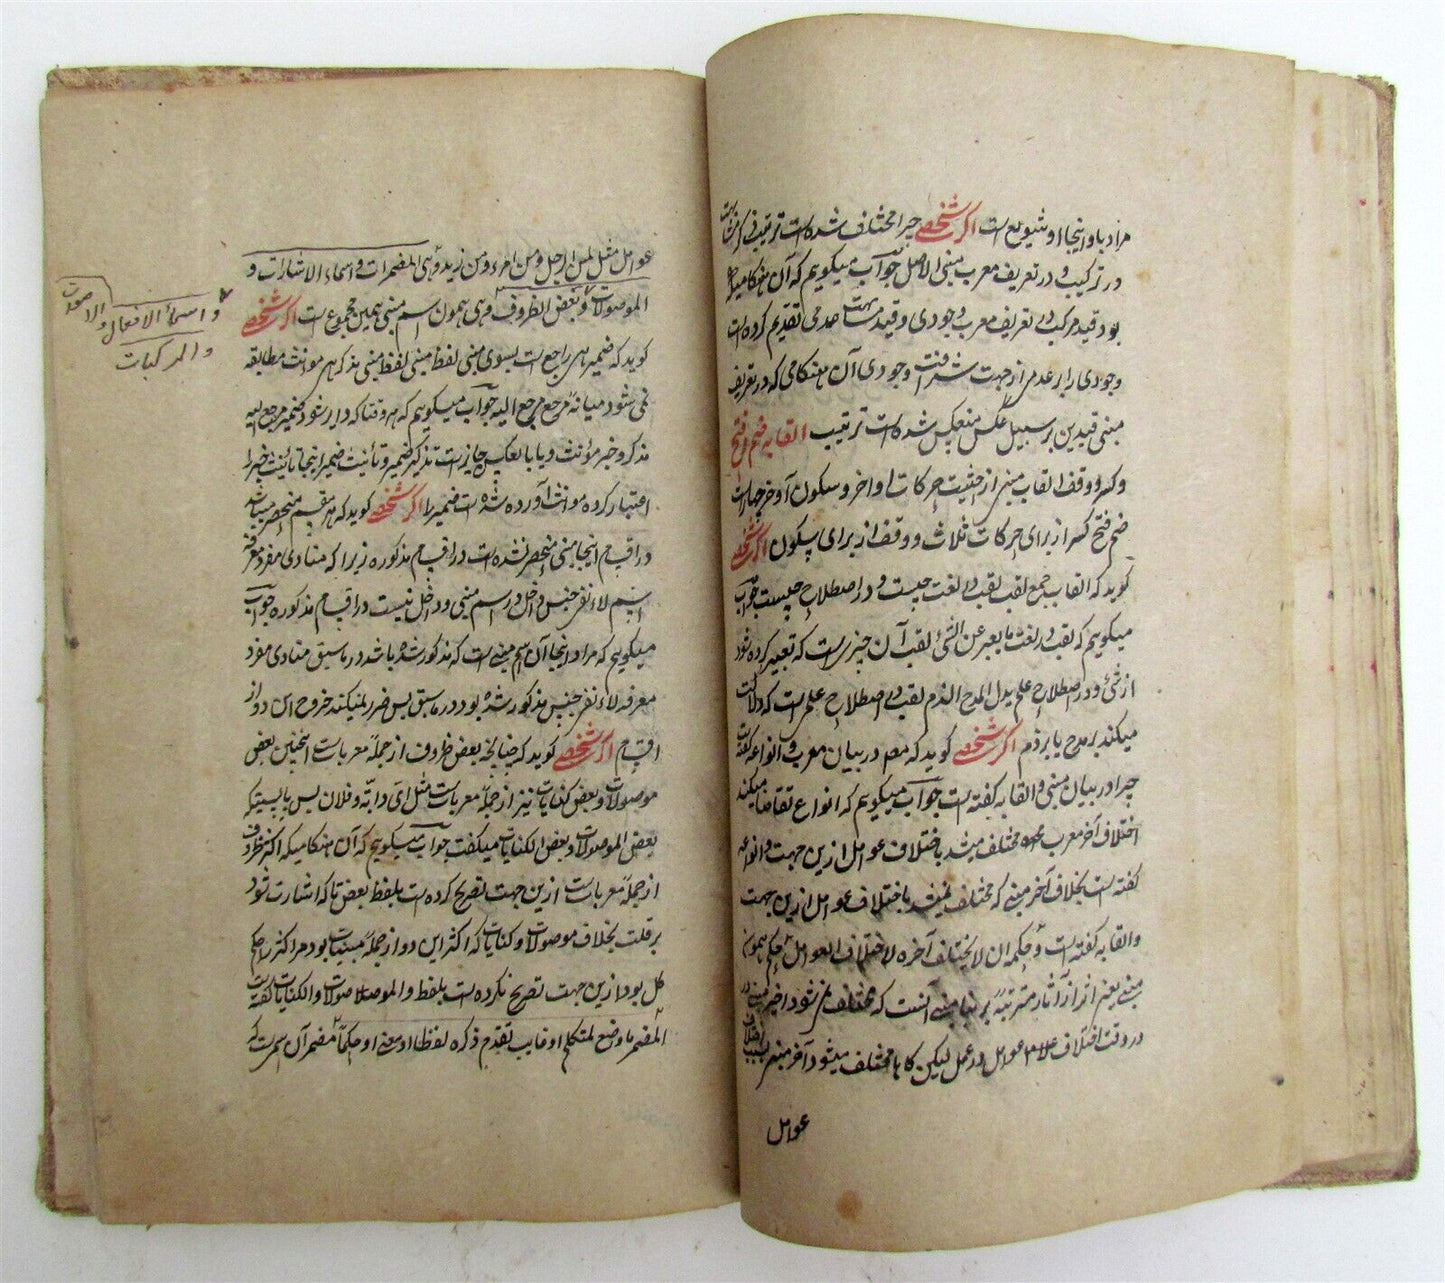 مراد باو اینجا او شیوع است اگر شخصے چرا مختلف شده است ترتیب
در ترکیب و در تعریف معرب مبنی الاصل جواب میگویم که آن هنگامیکه
بود قید مرکب در تعریف معرب وجودی و قید مشابهت عدمی تقدیم کرده است
وجودی را بر عدمی از جهت شرافت وجودی آن هنگامی که در تعریف
مبنی قیدین بر سبیل عکس منعکس شده است ترتیب القابه ضم و فتح
و کسر و وقف القاب مبنی از حیثیت حرکات اواخر و سکون آواخر
ضم فتح کسر از برای حرکات ثلاث و وقف از برای سکون اگر شخصے
گوید که القاب جمع لقب لقب در لغت چیست و در اصطلاح چیست جواب
میگویم که لقب در لغت ما یعبر عن الشئ لقب آن چیزی است که تعبیر کرده شود
از شئ و در اصطلاح علم یدل المدح الذم لقب در اصطلاح علم است که دلالت
میکند بر مدح یا بر ذم اگر شخصے گوید که مصـ در بیان معرب و انواعه گفته
چرا در بیان مبنی و القابه گفته است جواب میگویم که انواع تقاضا میکند
اختلاف آخر معرب مختلف میشد باختلاف عوامل ازین جهت و انواعه
گفته است بخلاف آخر مبنی که مختلف نمیشد باختلاف عوامل ازین جهت
و القابه گفته است و حکمه ان لا یختلف آخره لاختلاف العوامل حکم همون
مبنی یعنی اثر از آثار مترتبه بر بنا مبنی آنست که مختلف نمی شود آخر مبنی
در وقت اختلاف عوامل در عمل لیکن گاها مختلف میشود آخر مبنی بسبب اختلاف
عوامل
عوامل مثل لمن الرجل و من امرء و من زید وهی المضمرات و اسماء الاشارات و
الموصولات و بعض الظروف وهی همون اسم مبنی همین مجموع است اگر شخصے
گوید که ضمیر هی راجع است بسوی مبنی لفظ مبنی لفظ مبنی مذکر هی مؤنث مطابقه
نمی شود میانه مرجع مرجع الیه جواب میگویم که هر وقتا که دایر شود ضمیر مرجع الیه
مذکر و خبر مؤنث و یا بالعکس جایز است تذکیر ضمیر و تأنیث ضمیر اینجا تأنیث خبر را
اعتبار کرده مؤنث آورده شده است ضمیر را اگر شخصے گوید که هر مقسم منحصر میباشد
در اقسام اینجا مبنی منحصر نشده است در اقسام مذکوره زیرا که منادی مفرد معرفه
اسم لاء نفی جنس داخل در اسم مبنی و داخل نیست در اقسام مذکوره جواب
میگویم که مراد اینجا آن اسم مبنی است که مذکور نشده باشد در ماسبق منادی مفرد
معرفه لاء نفی جنس مذکور شده بود در ماسبق پس ضرر نمیکند خروج این دو از
اقسام اگر شخصے گوید که چنانچه بعض ظروف از جمله معربات است همچنین بعض
موصولات و بعض کنایات نیز از جمله معربات مثل ای دابة و فلان پس بایستیکه
بعض الموصولات و بعض الکنایات میگفت جواب میگویم که آن هنگامیکه اکثر ظروف
از جمله معربات است ازین جهت تصریح کرده است بلفظ بعض تا که اشارت شود
بر قلت بخلاف موصولات و کنایات که اکثر این دو از جمله مبنیات بود مر اکثر را حکم
کل بود ازین جهت تصریح نکرده است بلفظ و الموصولات و الکنایات گفته است
المضمر ما وضع لمتکلم او غایب تقدم ذکره لفظا او معنی او حکما مضمر آن اسم است که
و اسماء الافعال و الاصوات
و المرکبات